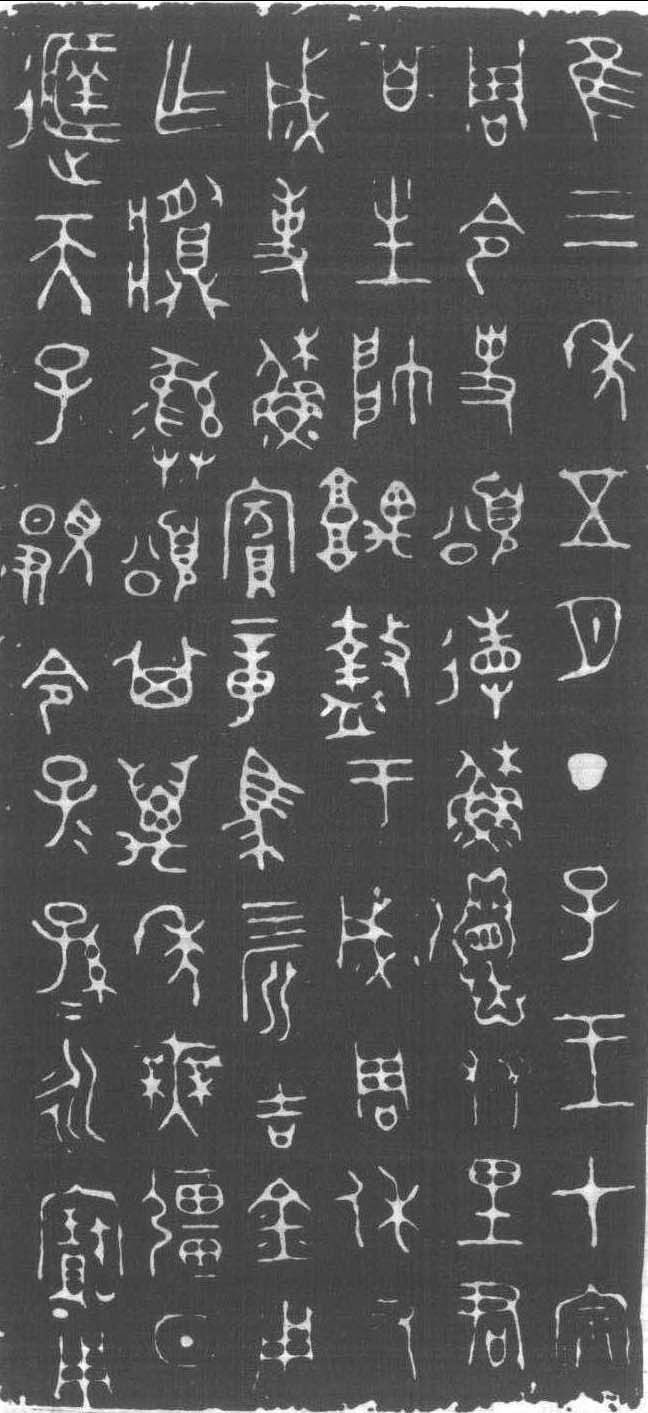 隹三年五月丁子王才宗
周令史頌省蘇友里君
百生帥堣盩于成周休又
成事蘇賓章馬亖匹吉金用
乍䵼彝頌其萬年無疆日
遟天子覭令子=孫=永寶用